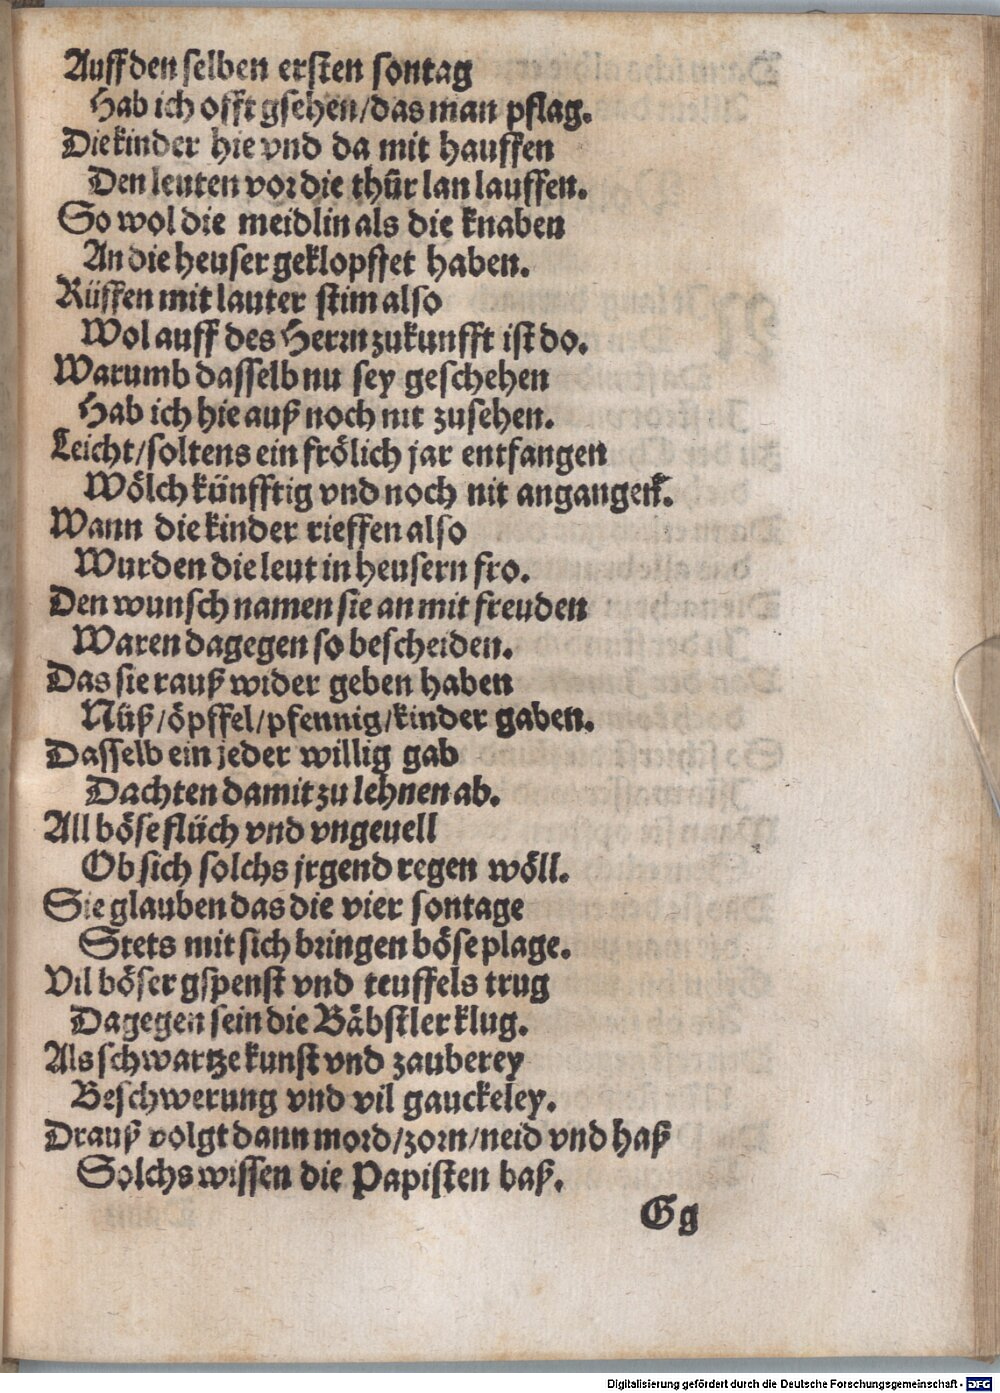 Auff den selben ersten sontag
Hab ich offt gsehen/das man pflag.
Die kinder hie vnd da mit hauffen
Den leuten vor die thür lan lauffen.
So wol die meidlin als die knaben
An die heuser geklopffet haben.
Rüffen mit lauter stim also
Wol auff des Herrn zukunfft ist do.
Warumb dasselb nu sey geschehen
Hab ich hie auß noch nit zusehen.
Leicht/soltens ein frölich jar entfangen
Wölch künfftig vnd noch nit angangen.
Wann die kinder rieffen also
Wurden die leut in heusern fro.
Den wunsch namen sie an mit freuden
Waren dagegen so bescheiden.
Das sie rauß wider geben haben
Nüß/öpffel/pfennig/kinder gaben.
Dasselb ein jeder willig gab
Dachten damit zu lehnen ab.
All böse flüch vnd vngeuell
Ob sich solchs jrgend regen wöll.
Sie glauben das die vier sontage
Stets mit sich bringen böse plage.
Vil böser gspenst vnd teuffels trug
Dagegen sein die Bäbstler klug.
Als schwartze kunst vnd zauberey
Beschwerung vnd vil gauckeley.
Drauß volgt dann mord/zorn/neid vnd haß
Solchs wissen die Papisten baß.
Gg
Digitalisierung gefördert durch die Deutsche Forschungsgemeinschaft - DFG